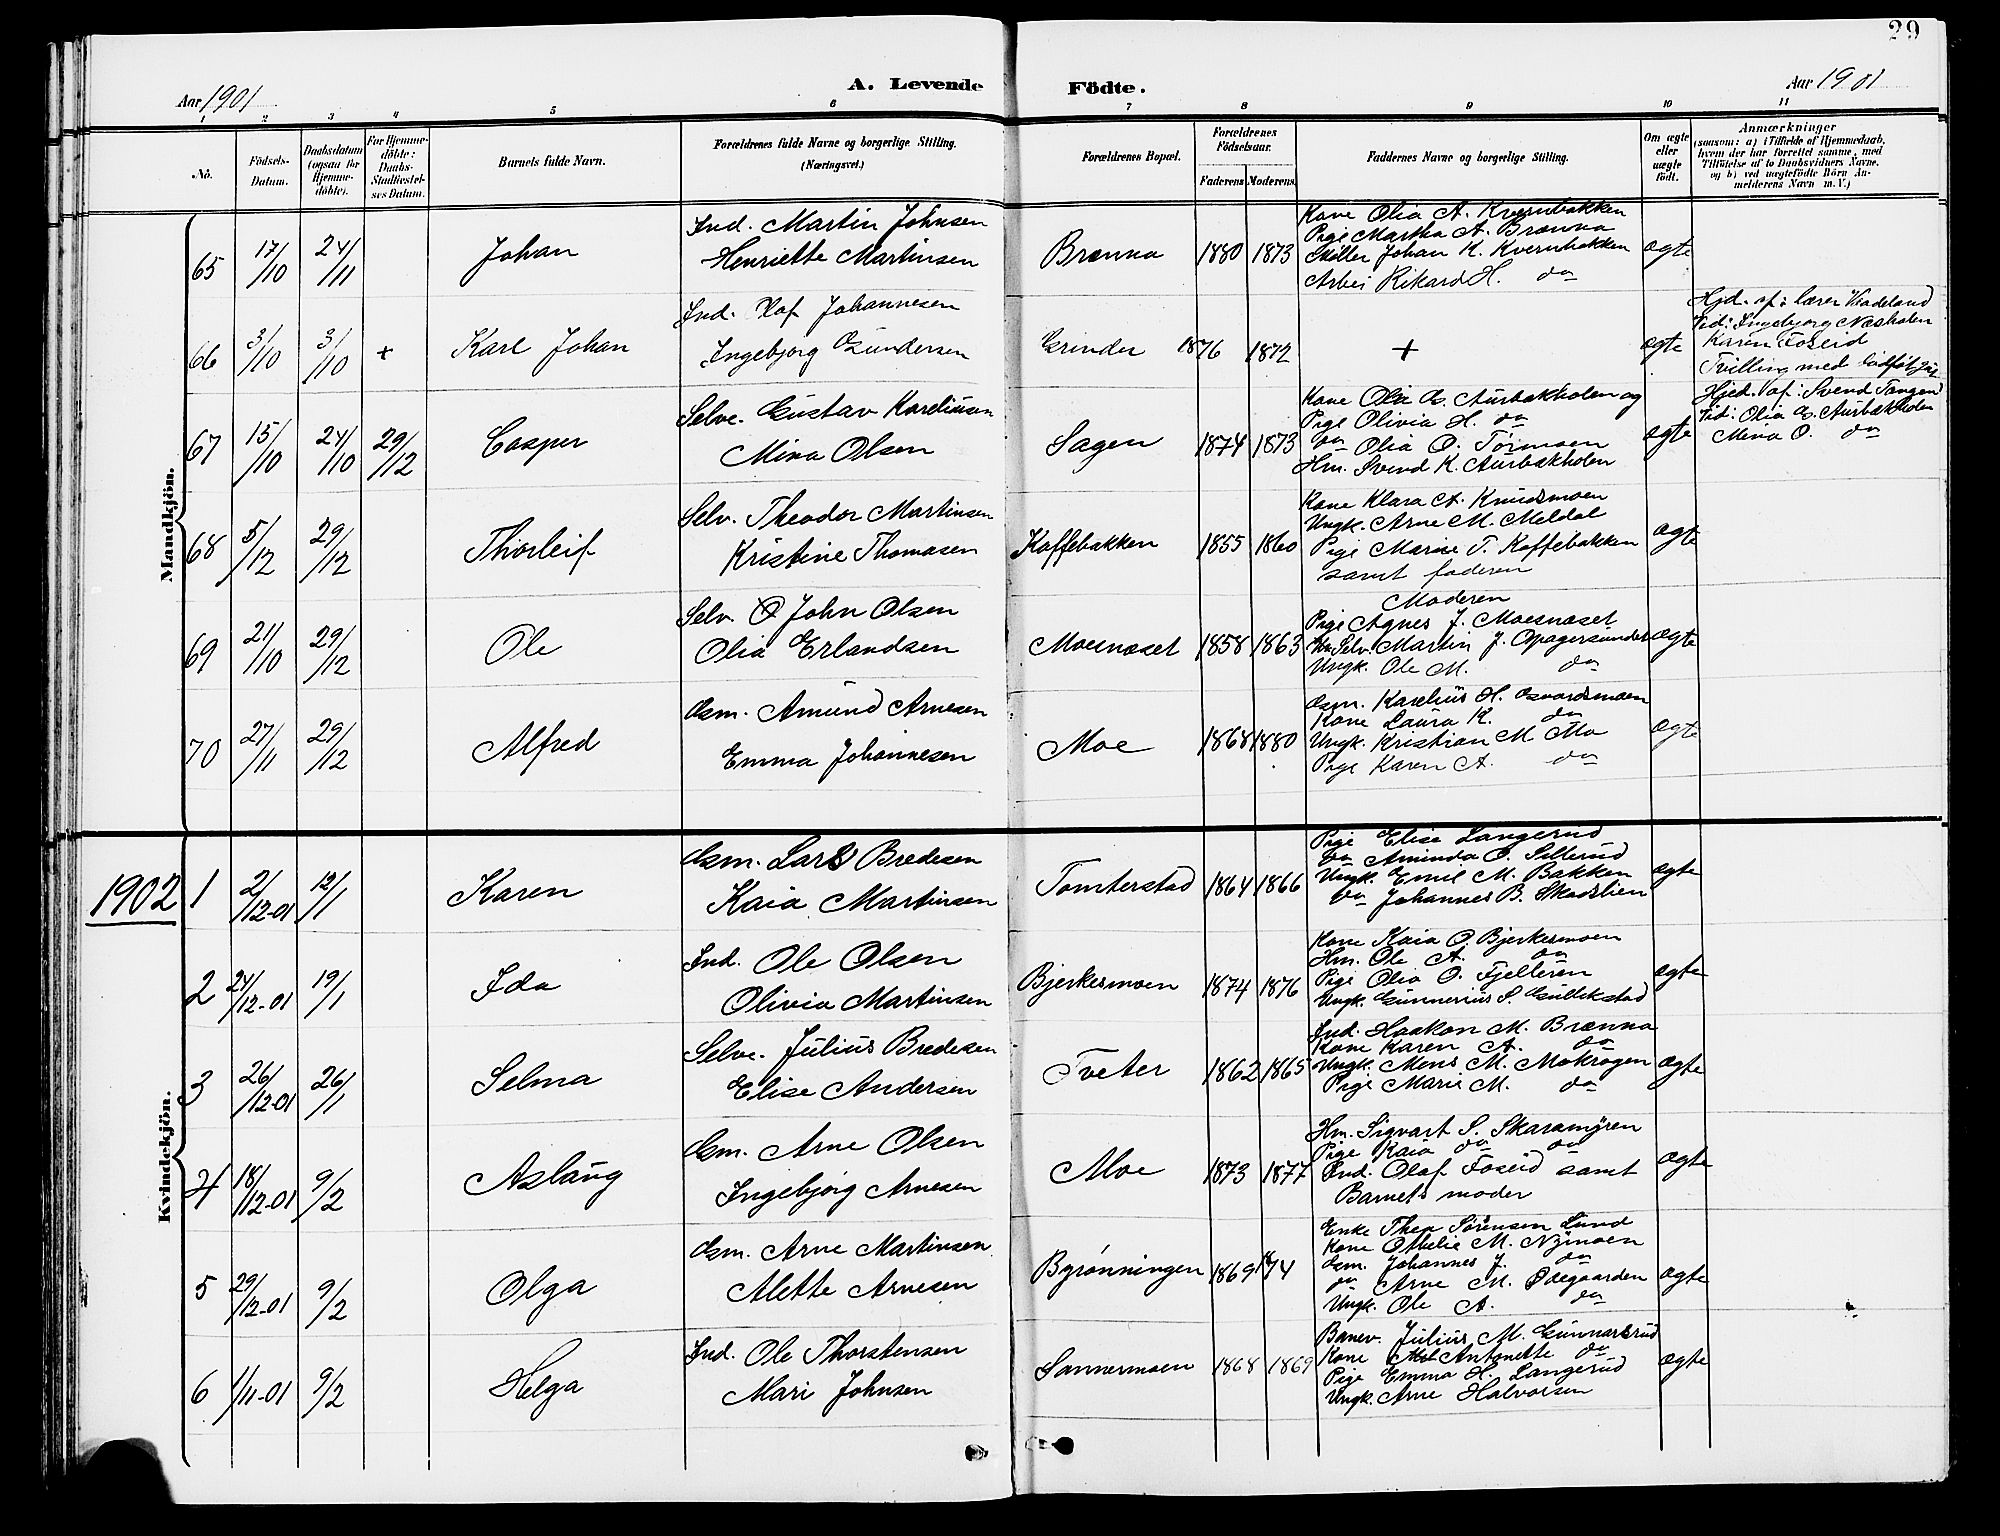 29
Aar 1901
A. Levende
Födte.
Aar 1901
1 2 3 4 5 6 7 8 9 10 11
No.
Fødsels-Datum.
Daabsdatum (ogsaa for Hjemme-döbte).
For Hjemme-döbte: Daabs-Stadfæstel-ses Datum.
Barnets fulde Navn.
Forældrenes fulde Navne og borgerlige Stilling. (Næringsvei.)
Forældrenes Bopæl.
Forældrenes Födselsaar.
Faderens Moderens.
Faddernes Navne og borgerlige Stilling.
Om ægte eller uægte födt.
Anmærkninger
(saasom: a) i Tilfælde af Hjemmedaab,
hvem der har forrettet samme, med
Tilföielse af to Daabsvidners Navne,
og b) ved uægtefödte Börn An-
melderens Navn m. V.)
Mandkjön.
65 17/10 24/11 Johan
Ind. Martin Johnsen
Henriette Martinsen
Brænna 1880 1873
Kone Olia A. Kvernbakken
Pige Martha A. Brænna
Møller Johan K. Kvernbakken
Arbei Rikard H. do
ægte
66 3/10 3/10 + Karl Johan
Ind. Olaf Johannesen
Ingebjorg Gundersen
Grinder 1876 1872
+
ægte
Hjd. af: lærer Viadeland
Vid: Ingebjorg Næsholen
Karen Foseid
Tvilling med
67 15/10 24/10 29/12 Casper
Selve. Gustav Kareliusen
Mina Olsen
Sagen 1874 1873
Kone Olia G. Aurbakholen og
Pige Olivia H. do
do Olia O. Tørmoen
Hm. Svend K. Aurbakholen
ægte
Hjed. af: Svend Tangen
Vid: Olia G. Aurbakholen
Mina O. do
68 5/12 29/12 Thorleif
Selv. Theodor Martinsen
Kristine Thomasen
Kaffebakken 1855 1860
Kone Klara A. Knudsmoen
Ungk. Arne M. Meldal
Pige Marie T. Kaffebakken
samt faderen
ægte
69 21/10 29/12 Ole
Selv. John Olsen
Olia Erlandsen
Moesnæset 1858 1863
Moderen
Pige Agnes J. Moesnæset
Selv. Martin J. Opagersunder
Ungk. Ole M. do
ægte
70 27/11 29/12 Alfred
Gsm. Amund Arnesen
Emma Johannesen
Moe 1868 1880
Gsm. Karelius H. Gvardsmoen
Kone Laura K. do
Ungk. Kristian M. Mo
Pige Karen A. do
ægte
1902
Kvindekjön.
1 2/12-01 12/1 Karen
Gsm. Lars Bredesen
Kaia Martinsen
Tomterstad 1864 1866
Pige Elise Langerud
do Aminda O. Sillerud
Ungk. Emil M. Bakken
do Johannes B. Skadslien
ægte
2 24/12-01 19/1 Ida
Ind. Ole Olsen
Olivia Martinsen
Bjerkesmoen 1874 1876
Kone Kaia O. Bjerkesmoen
Hm. Ole A. do
Pige Olia O. Fjelleren
Ungk. Gunnerius S. Gullikstad
ægte
3 26/12-01 26/1 Selma
Selve. Julius Bredesen
Elise Andersen
Tveter 1862 1865
Ind. Haakon M. Brænna
Kone Karen A. do
Ungk. Mons M. Mokrogen
Pige Marie M. do
ægte
4 18/12-01 9/2 Aslaug
Gsm. Arne Olsen
Ingebjørg Arnesen
Moe 1873 1877
Hm. Sigvart S. Skaramyren
Pige Kaia do do
Ind. Olaf Foseid samt
Barnets moder
ægte
5 29/12-01 9/2 Olga
Gsm. Arne Martinsen
Alette Arnesen
Byrønningen 1869 1874
Enke Thea Sørensen Lund
Kone Othelie M. Nymoen
Gsm. Johannes J. do
do Arne M. Ødegaarden
Ungk. Ole A. do
ægte
6 1/11-01 9/2 Helga
Ind. Ole Thorstensen
Mari Johnsen
Sannermoen 1868 1869
Banev. Julius M. Gunnarsrud
Kone Antonette do
Pige Emma H. Langerud
Ungk. Arne Halvorsen
ægte